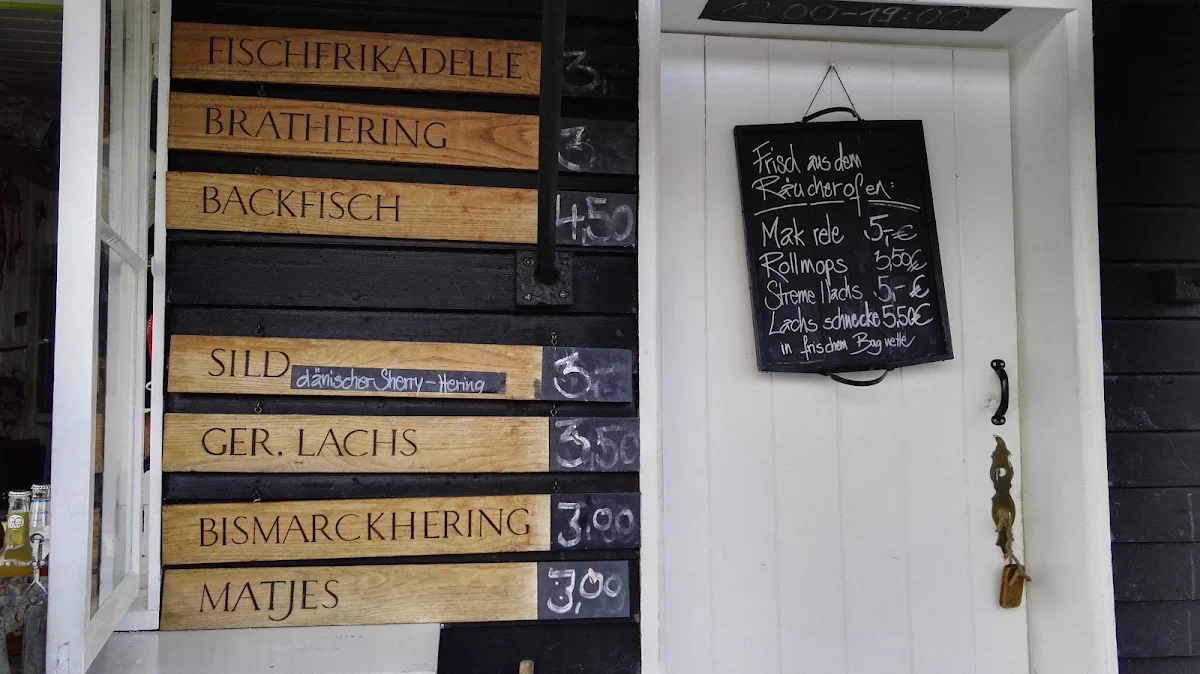 FISCHFRIKADELLE 3,-
BRATHERING 3
BACKFISCH 4,50
SILD dänischer Sherry-Hering 3,-
GER. LACHS 3,50
BISMARCKHERING 3,00
MATJES 3,00
12:00-19:00
Frisch aus dem
Räucherofen:
Makrele 5,-€
Rollmops 3,50€
Stremellachs 5,-€
Lachsschnecke 5,50€
in frischem Baguette